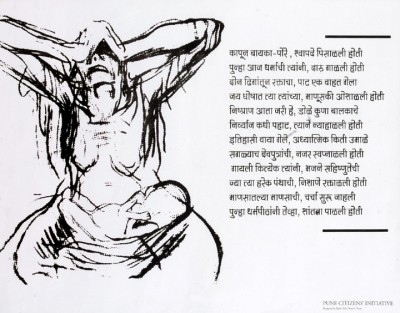 कापून बायका-पोरे, श्वापदे पिसाळली होती
पुन्हा आज धर्माची त्यांनी, वारु माळली होती
दोन दिसांतून रक्ताचा, पाट एक वाहत गेला
जय घोषात त्या त्यांच्या, माणूसकी ओशाळली होती
निष्प्राण आता जरी हे, डोळे कुणा बालकाचे
निर्व्याज कधी पहाट, त्यानें न्याहाळली होती
इतिहासी वाया गेले, अध्यात्मिक किती उमाळे
सगळ्याच देवपुत्रांची, नजर स्वप्नाळली होती
गायली कित्येक त्यांनी, भजने सहिष्णुतेची
ज्या त्या हरेक पंथाची, निशाणे रक्ताळली होती
माणसातल्या माणसाची, चर्चा सुरू जाहली
पुन्हा धर्मपीठांनी तेव्हा, शांतता पाळली होती
PUNE CITIZENS' INITIATIVE